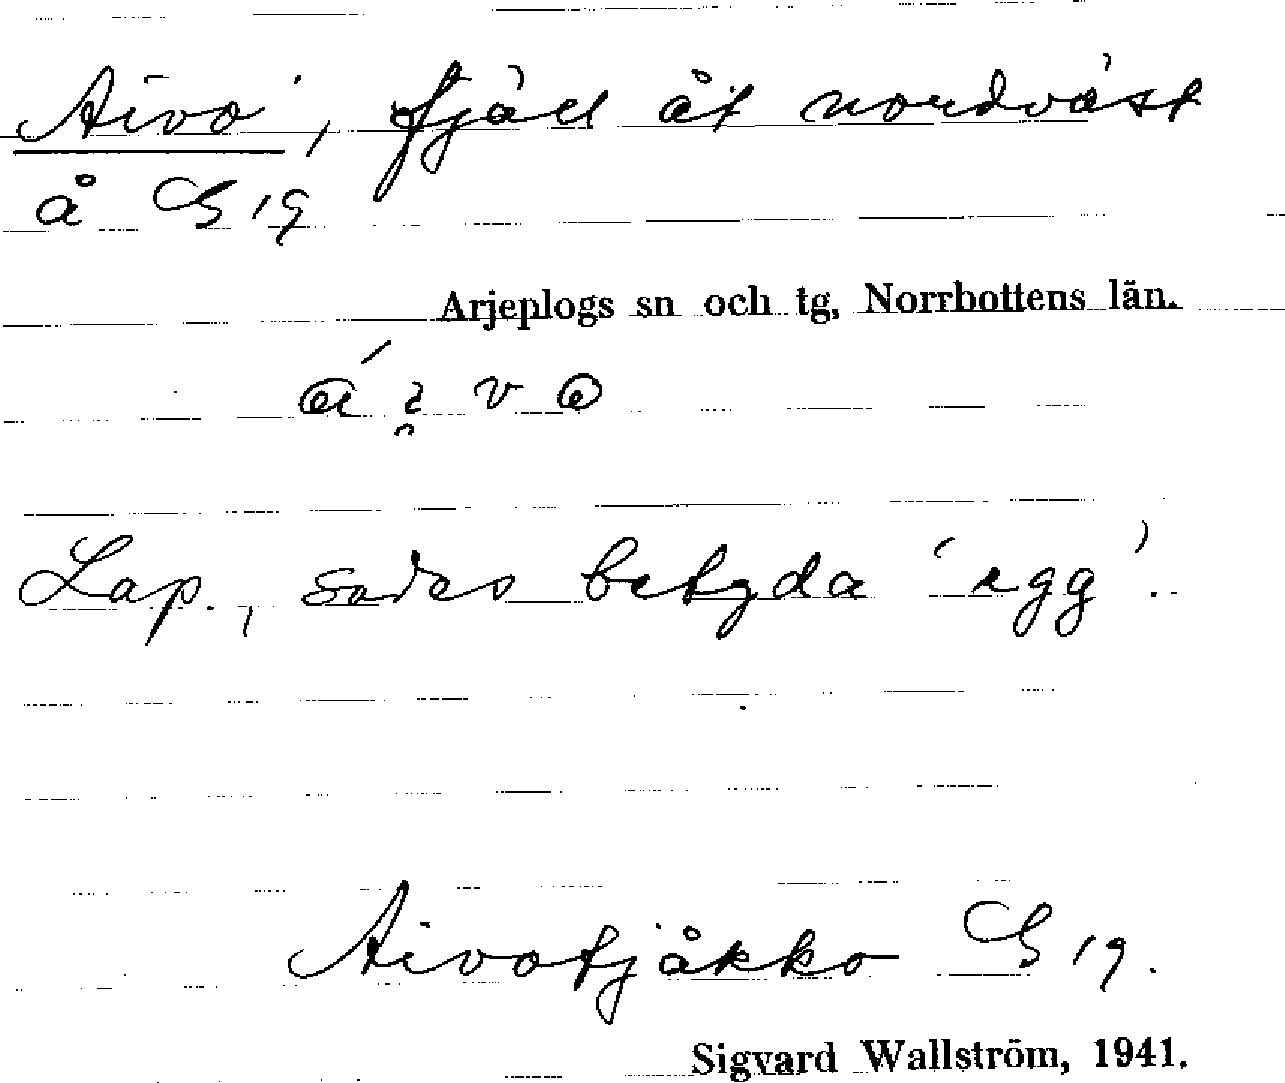 Aivo, fjäll åt nordväst
å G 19
Arjeplogs sn och tg, Norrbottens län.
Lap., sades betyda 'egg'.
Aivotjåkko G 19.
Sigvard Wallström, 1941.